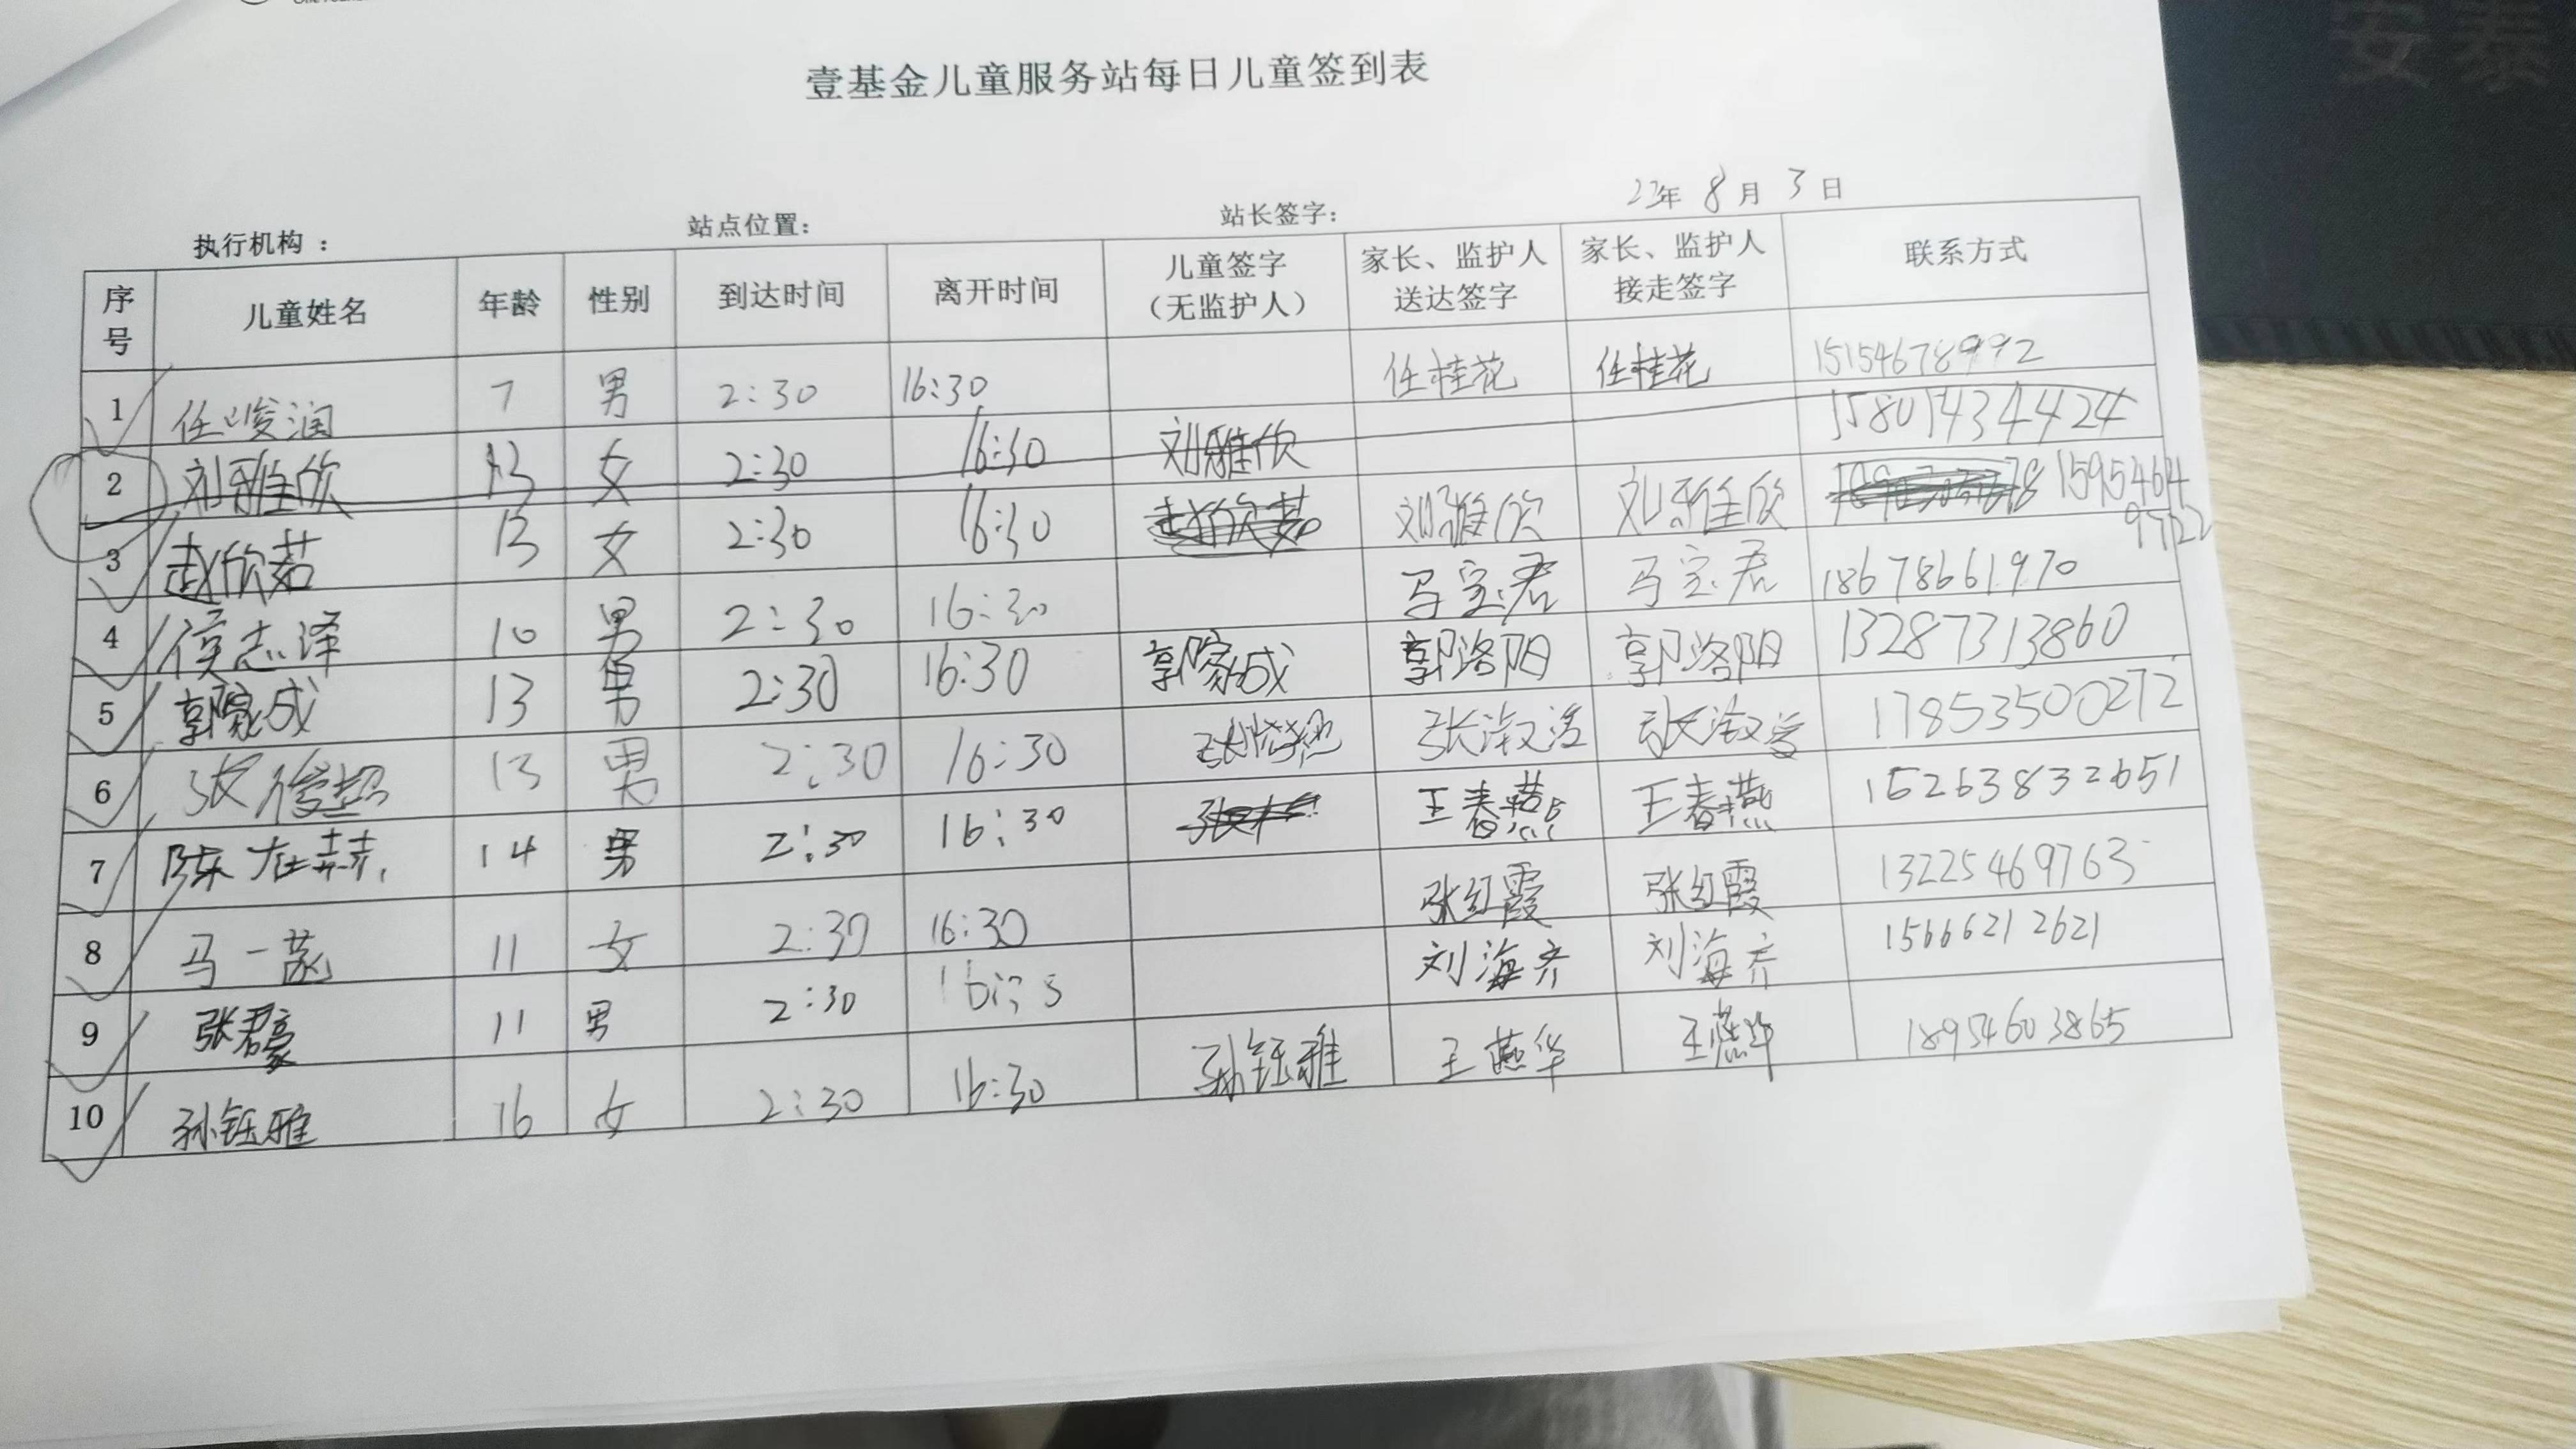 壹基金儿童服务站每日儿童签到表
23年 8月 3日
执行机构: 站点位置: 站长签字:
序号 儿童姓名 年龄 性别 到达时间 离开时间 儿童签字(无监护人) 家长、监护人送达签字 家长、监护人接走签字 联系方式
1 任峻润 7 男 2:30 16:30 任桂花 任桂花 15154678992
2 刘雅欣 13 女 2:30 16:30 刘雅欣 15801434424
3 赵欣茹 13 女 2:30 16:30 赵欣茹 刘雅欣 刘雅欣 15954649722
4 侯志泽 10 男 2:30 16:30 马宝君 马宝君 18678661970
5 郭家成 13 男 2:30 16:30 郭家成 郭洛阳 郭洛阳 13287313860
6 张俊超 13 男 2:30 16:30 张淑 张淑 17853500272
7 陈 14 男 2:30 16:30 王春燕 王春燕 15263832651
8 马一菡 11 女 2:30 16:30 张红霞 张红霞 13225469763
9 张君豪 11 男 2:30 刘海齐 刘海齐 15666212621
10 孙钰雅 16 女 2:30 16:30 孙钰雅 王燕华 王燕华 18954603865
安泰